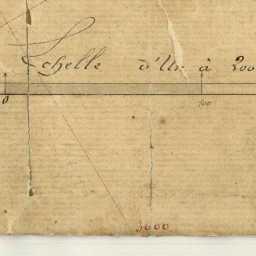 Echelle d'Un à 200
0 100
3000